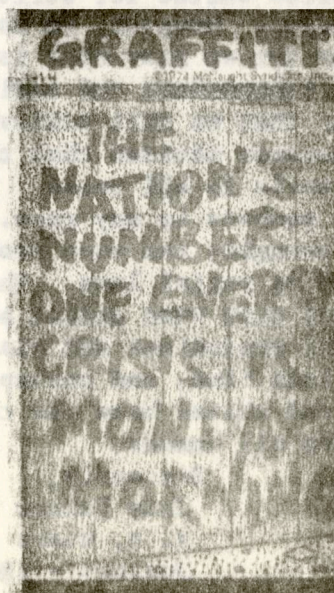 GRAFFITI
©1974 McNaught Syndicate, Inc.
THE
NATION'S
NUMBER
ONE ENERGY
CRISIS IS
MONDAY
MORNING